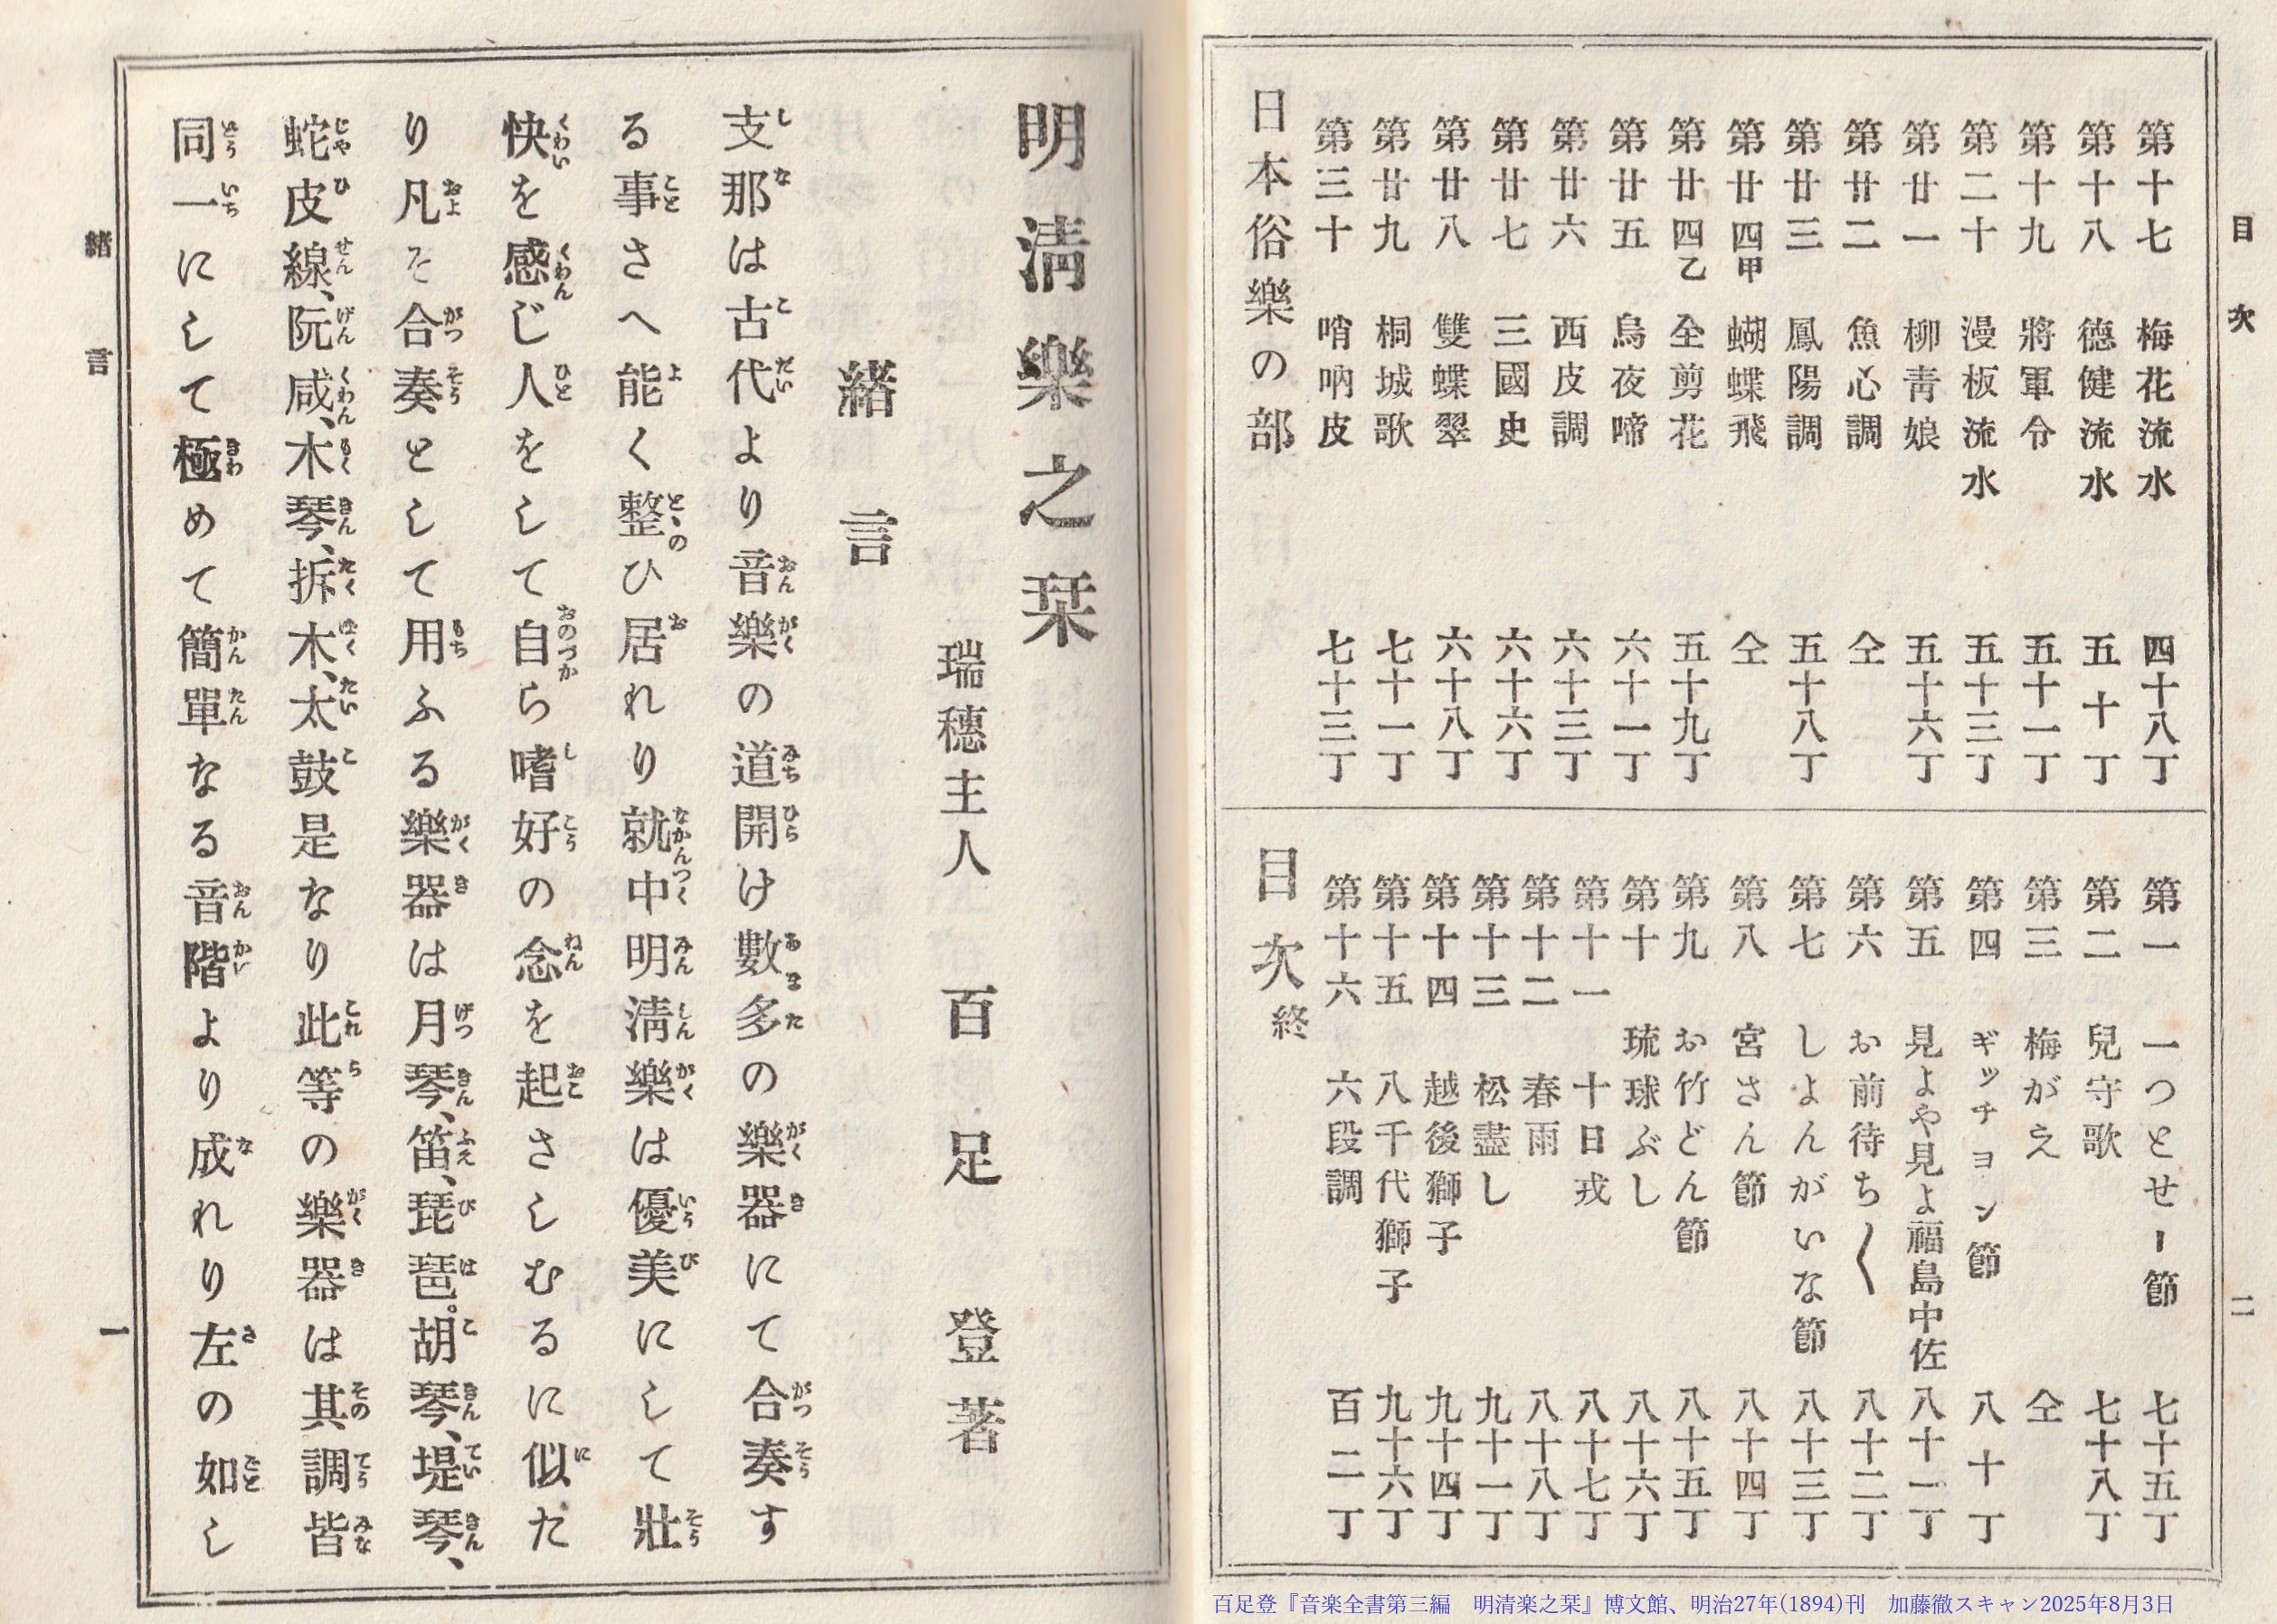 目次
二
第十七 梅花流水 四十八丁
第十八 德健流水 五十丁
第十九 將軍令 五十一丁
第二十 漫板流水 五十三丁
第廿一 柳靑娘 五十六丁
第廿二 魚心調 仝
第廿三 鳳陽調 五十八丁
第廿四甲 蝴蝶飛 仝
第廿四乙 全剪花 五十九丁
第廿五 烏夜啼 六十一丁
第廿六 西皮調 六十三丁
第廿七 三國史 六十六丁
第廿八 雙蝶翠 六十八丁
第廿九 桐城歌 七十一丁
第三十 哨吶皮 七十三丁
日本俗樂の部
第一 一つとせー節 七十五丁
第二 兒守歌 七十八丁
第三 梅がえ 仝
第四 ギッチョン節 八十丁
第五 見よや見よ福島中佐 八十一丁
第六 お前待ち〱 八十二丁
第七 しよんがいな節 八十三丁
第八 宮さん節 八十四丁
第九 お竹どん節 八十五丁
第十 琉球ぶし 八十六丁
第十一 十日戎 八十七丁
第十二 春雨 八十八丁
第十三 松盡し 九十一丁
第十四 越後獅子 九十四丁
第十五 八千代獅子 九十六丁
第十六 六段調 百二丁
目次終
明淸樂之栞
瑞穗主人 百足登著
緖言
支那は古代より音樂の道開け數多の樂器にて合奏す
る事さへ能く整ひ居れり就中明淸樂は優美にして壯
快を感じ人をして自ら嗜好の念を起さしむるに似た
り凡そ合奏として用ふる樂器は月琴、笛、琵琶。胡琴、堤琴、
蛇皮線、阮咸、木琴、拆木、太鼓是なり此等の樂器は其調皆
同一にして極めて簡單なる音階より成れり左の如し
緖言
一
百足登『音楽全書第三編　明清楽之栞』博文館、明治27年(1894)刊　加藤徹スキャン2025年8月3日